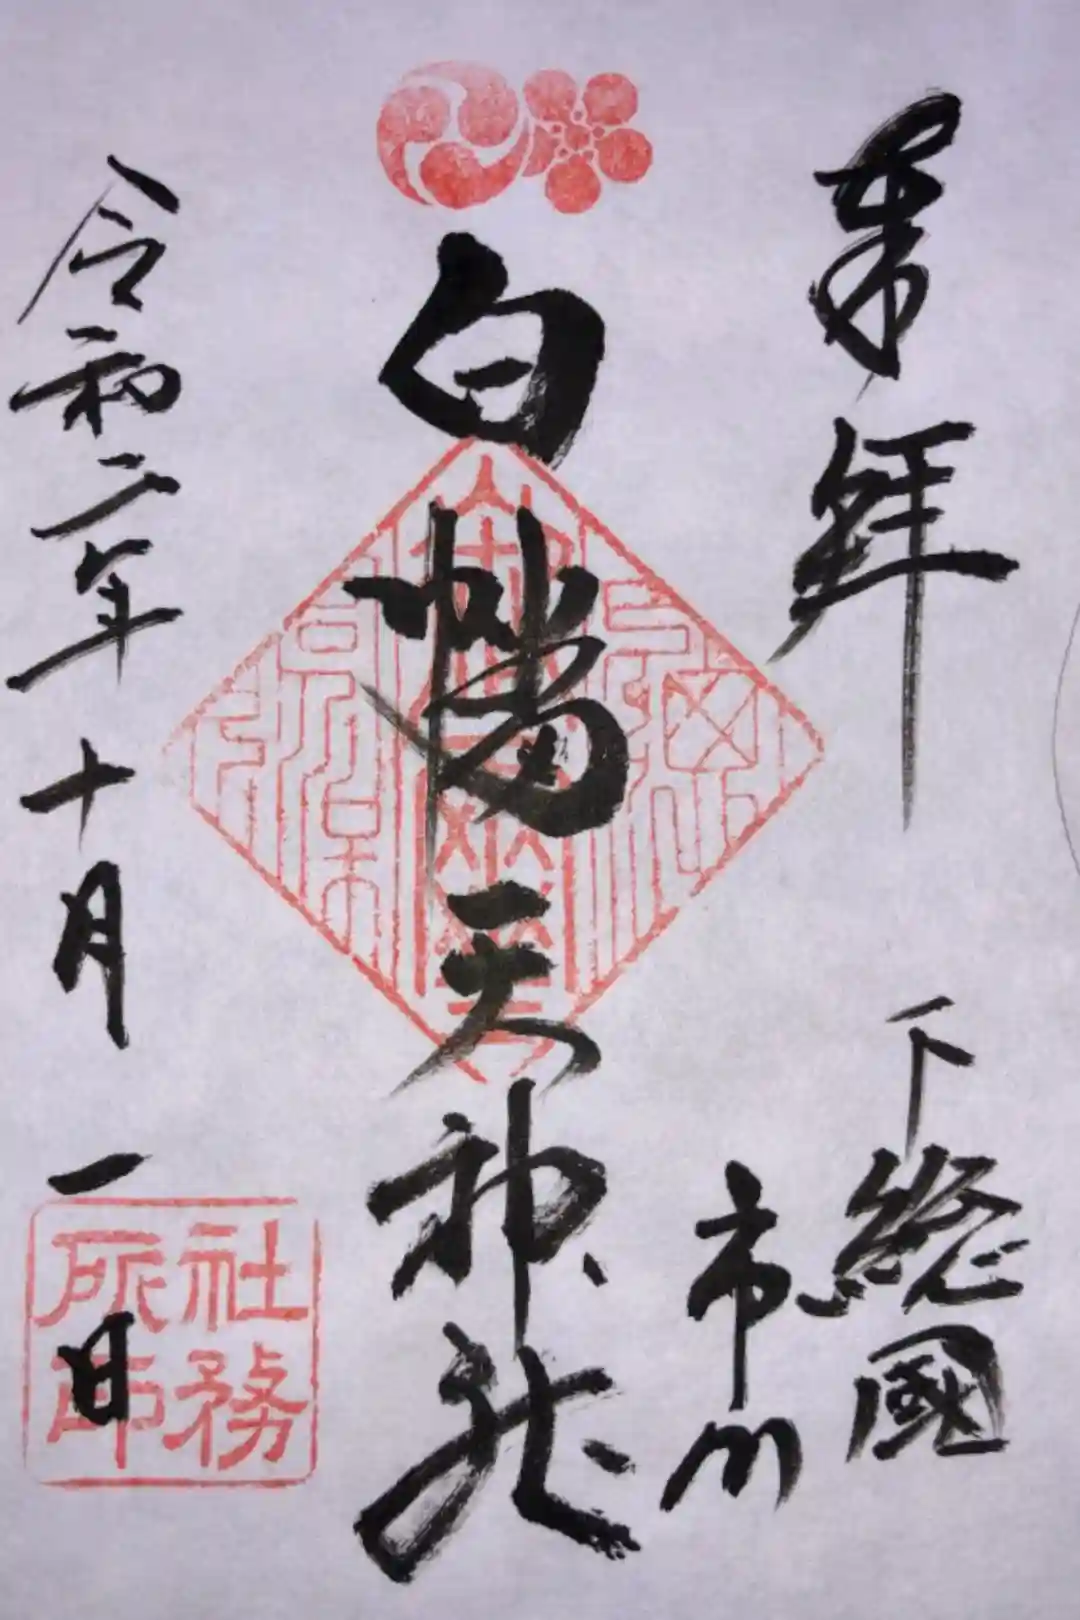 奉拜
下総國
市川
白幡天神社
令和二年十月一日
社務
所印